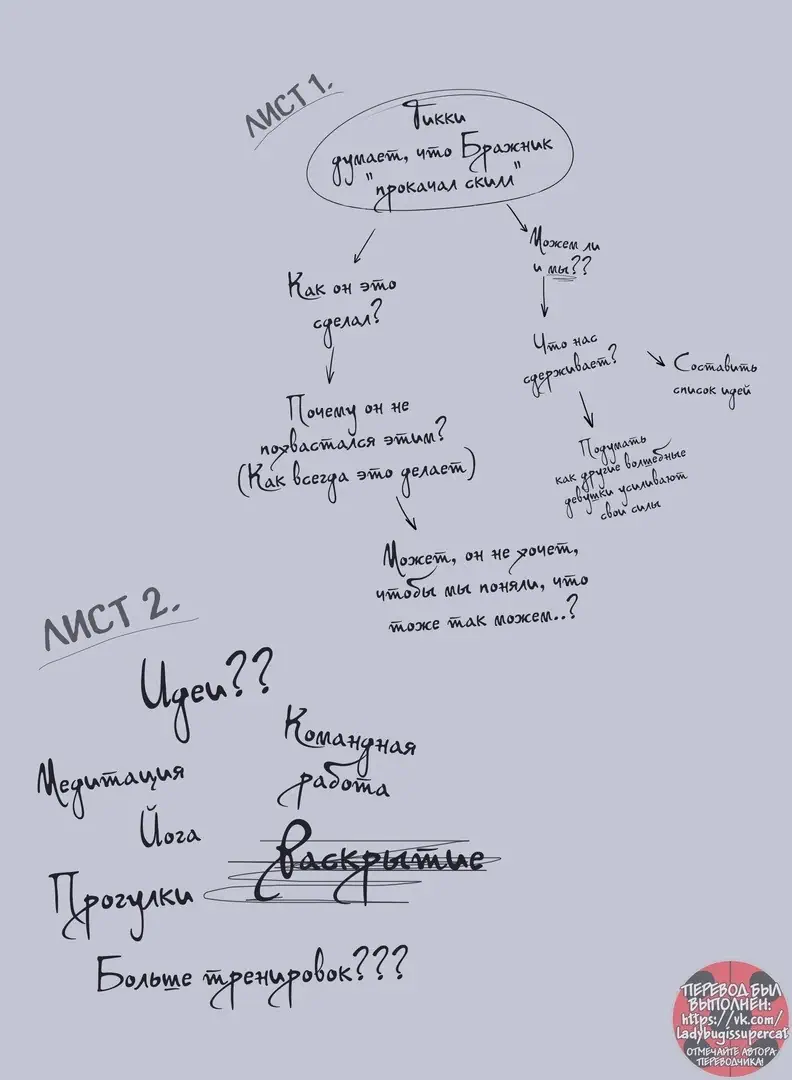 ЛИСТ 1.
Тикки
думает, что Бражник
"прокачал скилл"
Как он это
сделал?
Почему он не
похвастался этим?
(Как всегда это делает)
Может, он не хочет,
чтобы мы поняли, что
тоже так можем..?
Можем ли
и мы??
Что нас
сдерживает?
Составить
список идей
Подумать
как другие волшебные
девушки усиливают
свои силы
ЛИСТ 2.
Идеи??
Командная
работа
Медитация
Йога
Раскрытие
Прогулки
Больше тренировок???
ПЕРЕВОД БЫЛ
ВЫПОЛНЕН:
https://vk.com/
ladybugissupercat
ОТМЕЧАЙТЕ АВТОРА
ПЕРЕВОДЧИКА!